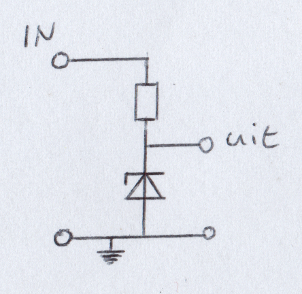 IN
uit